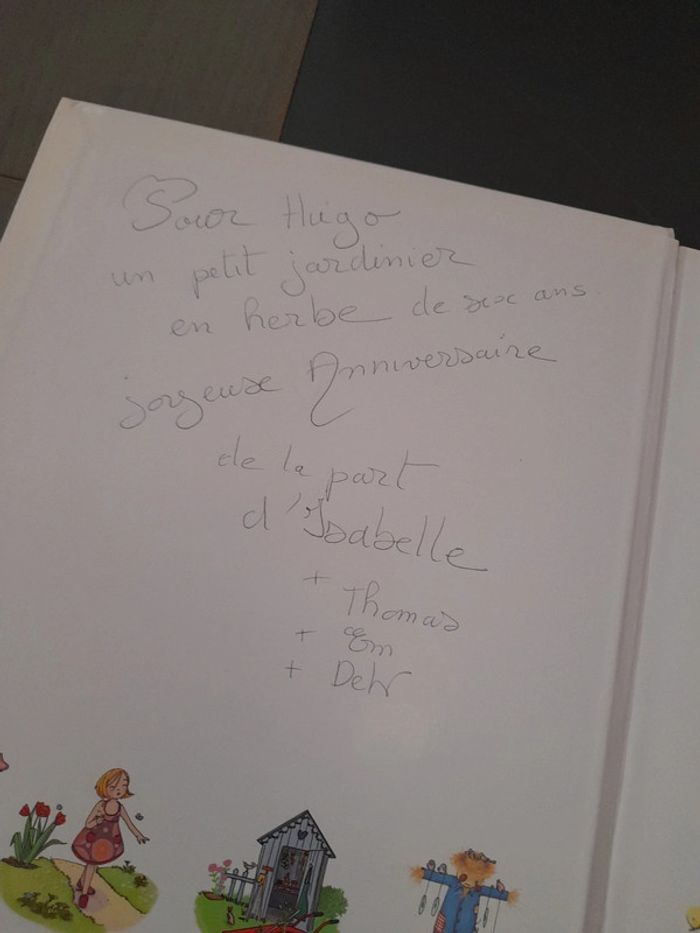 Pour Hugo
un petit jardinier
en herbe de six ans.
joyeuse Anniversaire
de la part
d'Isabelle
+ Thomas
+ Em
+